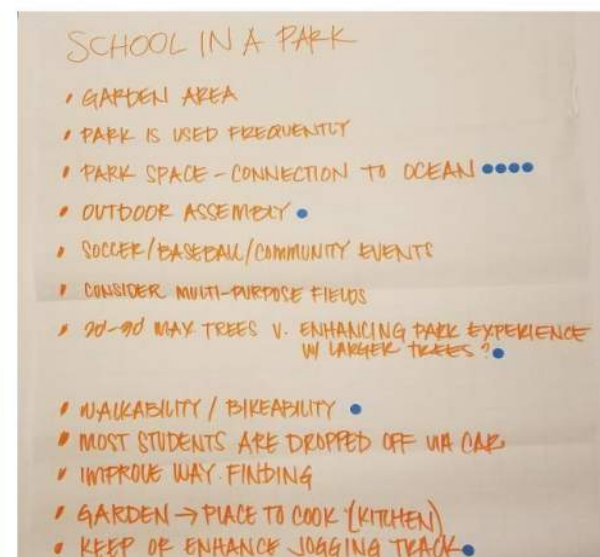 SCHOOL IN A PARK
• GARDEN AREA
• PARK IS USED FREQUENTLY
• PARK SPACE - CONNECTION TO OCEAN
• OUTDOOR ASSEMBLY
• SOCCER/BASEBALL/COMMUNITY EVENTS
• CONSIDER MULTI-PURPOSE FIELDS
• MAX TREES V. ENHANCING PARK EXPERIENCE
W/ LARGER TREES?
• WALKABILITY / BIKEABILITY
• MOST STUDENTS ARE DROPPED OFF VIA CAR
• IMPROVE WAY-FINDING
• GARDEN → PLACE TO COOK (KITCHEN)
• KEEP OR ENHANCE JOGGING TRACK